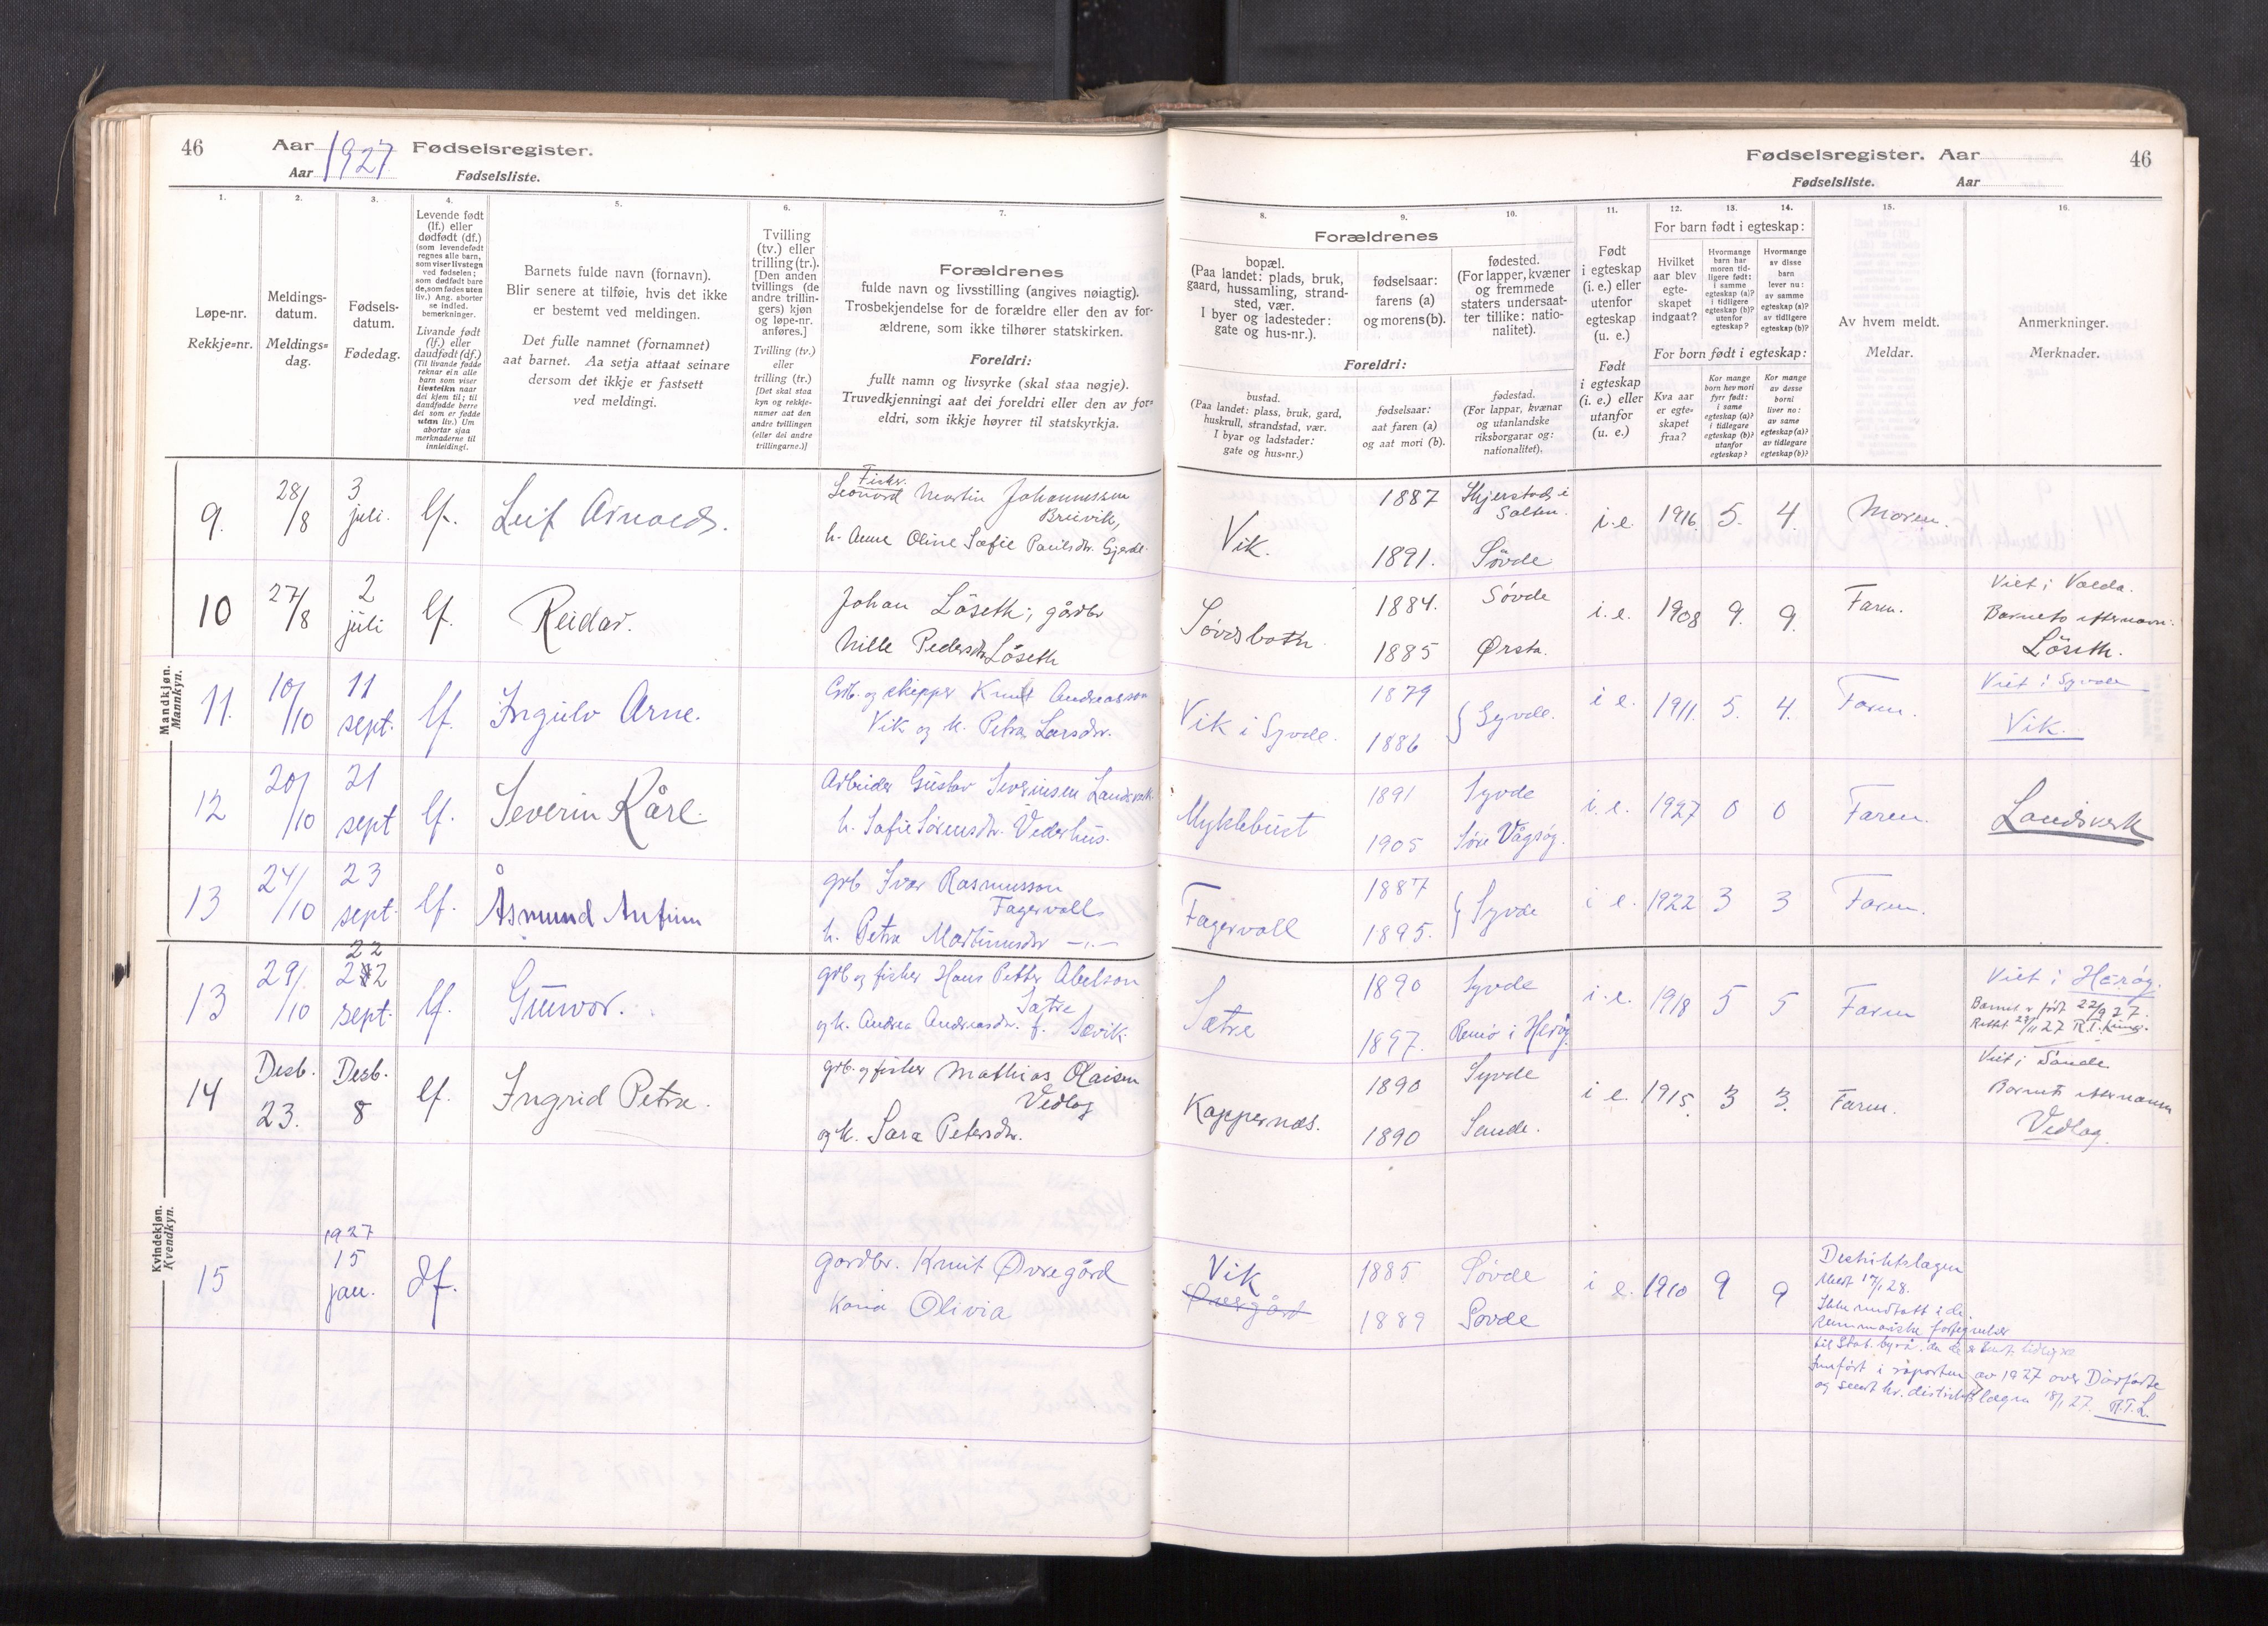 46
Aar 1927 Fødselsregister.
Aar Fødselsliste.
Fødselsregister. Aar
46
Fødselsliste. Aar
1.
Løpe-nr.
Rekkje=nr.
2.
Meldings-
datum.
Meldings=
dag.
3.
Fødsels-
datum.
Fødedag.
4.
Levende født
(lf.) eller
dødfødt (df.)
(som levendefødt
regnes alle barn,
som viser livstegn
ved fødselen;
som dødfødt bare
de, som fødes uten
liv.) Ang. aborter
se indled.
bemerkninger.
Livande født
(lf.) eller
daudfødt (df.)
(Til livande fødde
reknar ein alle
barn som viser
livsteikn naar
dei kjem til; til
daudfødde berre
dei som er fødde
utan liv.) Um
abortar sjaa
merknaderne til
innleiding.
5.
Barnets fulde navn (fornavn).
Blir senere at tilføie, hvis det ikke
er bestemt ved meldingen.
Det fulle namnet (fornamnet)
aat barnet. Aa setja attaat seinare
dersom det ikkje er fastsett
ved meldingi.
6.
Tvilling
(tv.) eller
trilling (tr.).
[Den anden
tvillings (de
andre trillin-
gers) kjøn
og løpe-nr.
anføres.]
Tvilling (tv.)
eller
trilling (tr.)
[Det skal staa
kyn og rekkje-
numer aat den
andre tvillingen
(eller dei andre
trillingarne.)]
7.
Forældrenes
fulde navn og livsstilling (angives nøiagtig).
Trosbekjendelse for de forældre eller den av for-
ældrene, som ikke tilhører statskirken.
Foreldri:
fullt namn og livsyrke (skal staa nøgje).
Truvedkjenningi aat dei foreldri eller den av for=
eldri, som ikkje høyrer til statskyrkja.
Forældrenes
8.
bopæl.
(Paa landet: plads, bruk,
gaard, hussamling, strand-
sted, vær.
I byer og ladesteder:
gate og hus-nr.).
9.
fødselsaar:
farens (a)
og morens (b).
10.
fødested.
(For lapper, kvæner
og fremmede
staters undersaat-
ter tillike: natio-
nalitet).
Foreldri:
bustad.
(Paa landet: plass, bruk, gard,
huskrull, strandstad, vær.
I byar og ladstader:
gate og hus=nr.)
fødselsaar:
aat faren (a)
og aat mori (b).
fødestad.
(For lappar, kvænar
og utanlandske
riksborgarar og:
nationalitet).
11.
Født
i egteskap
(i. e.) eller
utenfor
egteskap
(u. e.)
Født
i egteskap
(i. e.) eller
utanfor
(u. e.)
12. 13. 14.
For barn født i egteskap:
Hvilket
aar blev
egte-
skapet
indgaat?
Hvormange
barn har
moren tid-
ligere født:
i samme
egteskap (a)?
i tidligere
egteskap (b)?
utenfor
egteskap?
Hvormange
av disse
barn
lever nu:
av samme
egteskap (a)?
av tidligere
egteskap (b)?
For born født i egteskap:
Kva aar
er egte-
skapet
fraa?
Kor mange
born hev mori
fyrr født:
i same
egteskap (a)?
i tidlegare
egteskap (b)?
utanfor
egteskap?
Kor mange
av desse
borni
liver no:
av same
egteskap (a)?
av tidlegare
egteskap (b)?
15.
Av hvem meldt.
Meldar.
16.
Anmerkninger.
Merknader.
Mandkjøn.
Mannkyn.
9. 28/8 3 juli. lf. Leif Arnold.
Fisker.
Leonard Martin Johannessen
Breivik,
h. Anne Oline Sofie Paulsdtr. Gjerde.
Vik. 1887 Skjerstad i Salten. i.e. 1916. 5. 4. Moren.
1891. Søvde
10 27/8 2 juli lf. Reidar.
Johan Löseth, gårdbr
Nille Pedersdtr Löseth
1884. Søvde i.e. 1908 9. 9. Faren.
1885 Ørsta.
Viet i Volda.
Barnets efternavn:
Löseth.
11. 10/10 11 sept. lf. Ingulv Arne.
Grb. og skipper Knut Andreasson
Vik og h. Petra Larsdtr.
Vik i Syvde. 1879 Syvde. i e. 1911. 5. 4. Faren.
1886
Viet i Syvde
Vik.
12 20/10 21 sept lf. Severin Kåre.
Arbeider Gustav Severinsen Landsverk.
h. Sofie Sørensdtr. Vederhus.
Myklebust 1891 Syvde i.e. 1927 0 0 Faren. Landsverk
1905 Søre Vågsøy.
13 24/10 23 sept. lf. Åsmund Anfinn
grb Ivar Rasmusson
Fagervoll
h. Petra Martinusdtr —.—
Fagervoll 1887 Syvde i e. 1922 3 3 Faren.
1895.
Kvindekjøn.
Kvendkyn.
13 29/10 22 sept. lf. Gunvor.
grb og fisker Hans Petter Abelson
Sætre
og h. Andrea Andreasdtr. f. Sævik
Sætre 1890 Syvde i.e. 1918 5 5 Faren
1897. Remø i Herøy.
Viet i Herøy.
Barnet er født 22/9 27.
14 Desb. 23. Desb. 8 lf. Ingrid Petra.
grb. og fisker Mathias Olaisen
Vedlog
og h. Sara Petersdtr.
Koppernæs. 1890 Syvde i e. 1915. 3 3. Faren.
1890 Sande.
Viet i Sande
Barnets efternavn
Vedlog.
15 1927 15 jan. df.
gardbr. Knut Øvregård
Kona Olivia
Vik
Øvregård
1885 Søvde i e. 1910 9 9
1889 Søvde
Distriktslægen
Meldt 17/1 28.
Ikke medtatt i de
summariske fortegnelser
til Stat. byrå. da de er sendt tidligere
Innført i raporten av 1927 over Dødfødte
og sendt hr. distriktslægen 18/1 27. R.T.L.